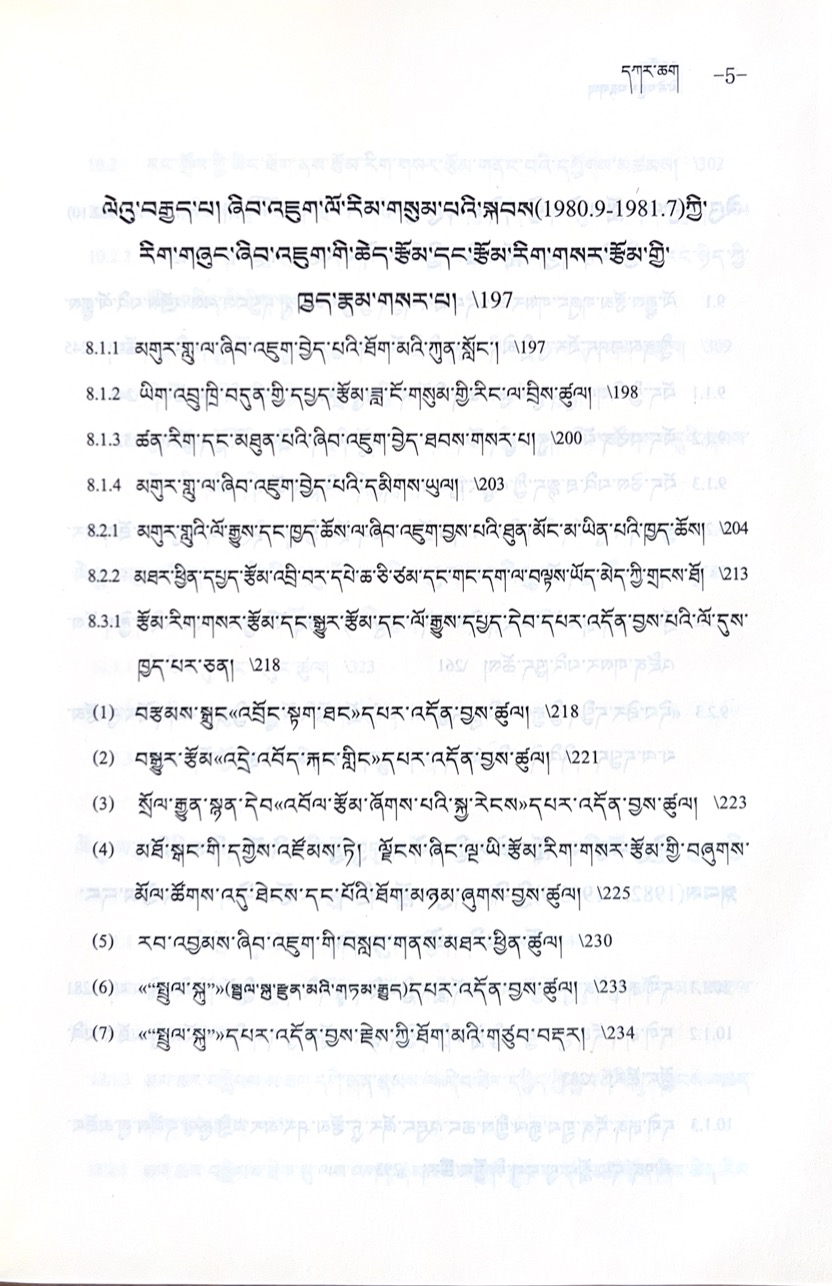 དཀར་ཆག −5−
ལེའུ་བརྒྱད་པ། ཞིབ་འཇུག་ལོ་རིམ་གསུམ་པའི་སྐབས(1980.9-1981.7)ཀྱི་
རིག་གཞུང་ཞིབ་འཇུག་གི་ཆེད་རྩོམ་དང་རྩོམ་རིག་གསར་རྩོམ་གྱི་
ཁྱད་རྣམ་གསར་པ། \197
8.1.1 མགུར་གླུ་ལ་ཞིབ་འཇུག་བྱེད་པའི་ཐོག་མའི་ཀུན་སློང་། \197
8.1.2 ཡིག་འབྲུ་ཁྲི་བདུན་གྱི་དཔྱད་རྩོམ་ཟླ་ངོ་གསུམ་གྱི་རིང་ལ་བྲིས་ཚུལ། \198
8.1.3 ཚན་རིག་དང་མཐུན་པའི་ཞིབ་འཇུག་བྱེད་ཐབས་གསར་པ། \200
8.1.4 མགུར་གླུ་ལ་ཞིབ་འཇུག་བྱེད་པའི་དམིགས་ཡུལ། \203
8.2.1 མགུར་གླུའི་ལོ་རྒྱུས་དང་ཁྱད་ཆོས་ལ་ཞིབ་འཇུག་བྱས་པའི་ཐུན་མོང་མ་ཡིན་པའི་ཁྱད་ཆོས། \204
8.2.2 མཐར་ཕྱིན་དཔྱད་རྩོམ་འབྲི་བར་དཔེ་ཆ་ཅི་ཙམ་དང་གང་དག་ལ་བལྟས་ཡོད་མེད་ཀྱི་གྲངས་ཐོ། \213
8.3.1 རྩོམ་རིག་གསར་རྩོམ་དང་སྒྱུར་རྩོམ་དང་ལོ་རྒྱུས་དཔྱད་དེབ་དཔར་འདོན་བྱས་པའི་ལོ་དུས་
ཁྱད་པར་ཅན། \218
(1) བརྩམས་སྒྲུང《འབྲོང་སྟག་ཐང》དཔར་འདོན་བྱས་ཚུལ། \218
(2) བསྒྱུར་རྩོམ《འདྲེ་འབོད་རྐང་གླིང》དཔར་འདོན་བྱས་ཚུལ། \221
(3) སྲོལ་རྒྱུན་སྙན་དེབ《འབོལ་རྩོམ་ཞོགས་པའི་སྐྱ་རེངས》དཔར་འདོན་བྱས་ཚུལ། \223
(4) མཐོ་སྒང་གི་དགྱེས་འཛོམས་ཏེ། ལྗོངས་ཞིང་ལྔ་ཡི་རྩོམ་རིག་གསར་རྩོམ་གྱི་བཞུགས་
མོལ་ཚོགས་འདུ་ཐེངས་དང་པོའི་ཐོག་མཉམ་ཞུགས་བྱས་ཚུལ། \225
(5) རབ་འབྱམས་ཞིབ་འཇུག་གི་བསླབ་གནས་མཐར་ཕྱིན་ཚུལ། \230
(6) 《“སྤྲུལ་སྐུ”》(སྤྲུལ་སྐུ་རྫུན་མའི་གཏམ་རྒྱུད)དཔར་འདོན་བྱས་ཚུལ། \233
(7) 《“སྤྲུལ་སྐུ”》དཔར་འདོན་བྱས་རྗེས་ཀྱི་ཐོག་མའི་གཙུབ་བརྡར། \234